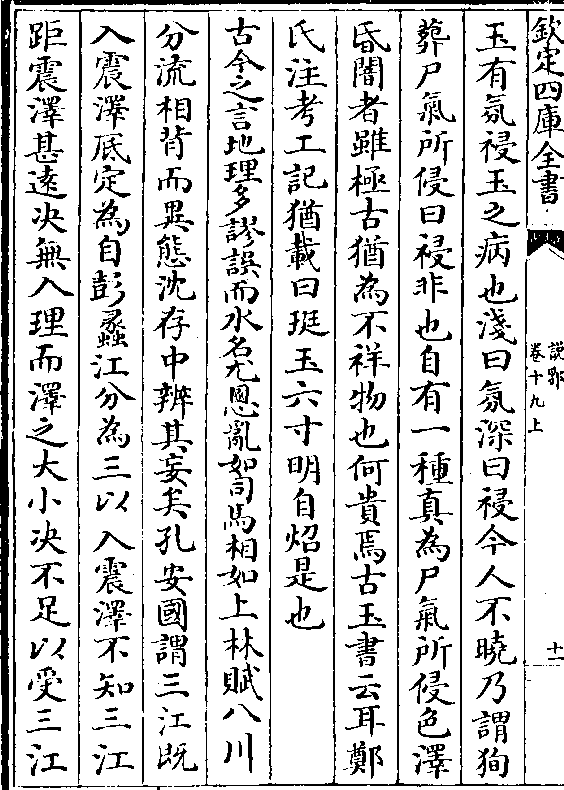 欽定四庫全書
說郛
卷十九上
十一
玉有氛祲玉之病也淺曰氛深曰祲今人不曉乃謂狥
葬尸氣所侵曰祲非也自有一種真為尸氣所侵色澤
昏闇者雖極古猶為不祥物也何貴焉古玉書云耳鄭
氏注考工記猶載曰珽玉六寸明自炤是也
古今之言地理多謬誤而水名尤悤亂如司馬相如上林賦八川
分流相背而異態沈存中辨其妄矣孔安國謂三江既
入震澤底定為自彭蠡江分為三以入震澤不知三江
距震澤甚逺决無入理而澤之大小决不足以受三江